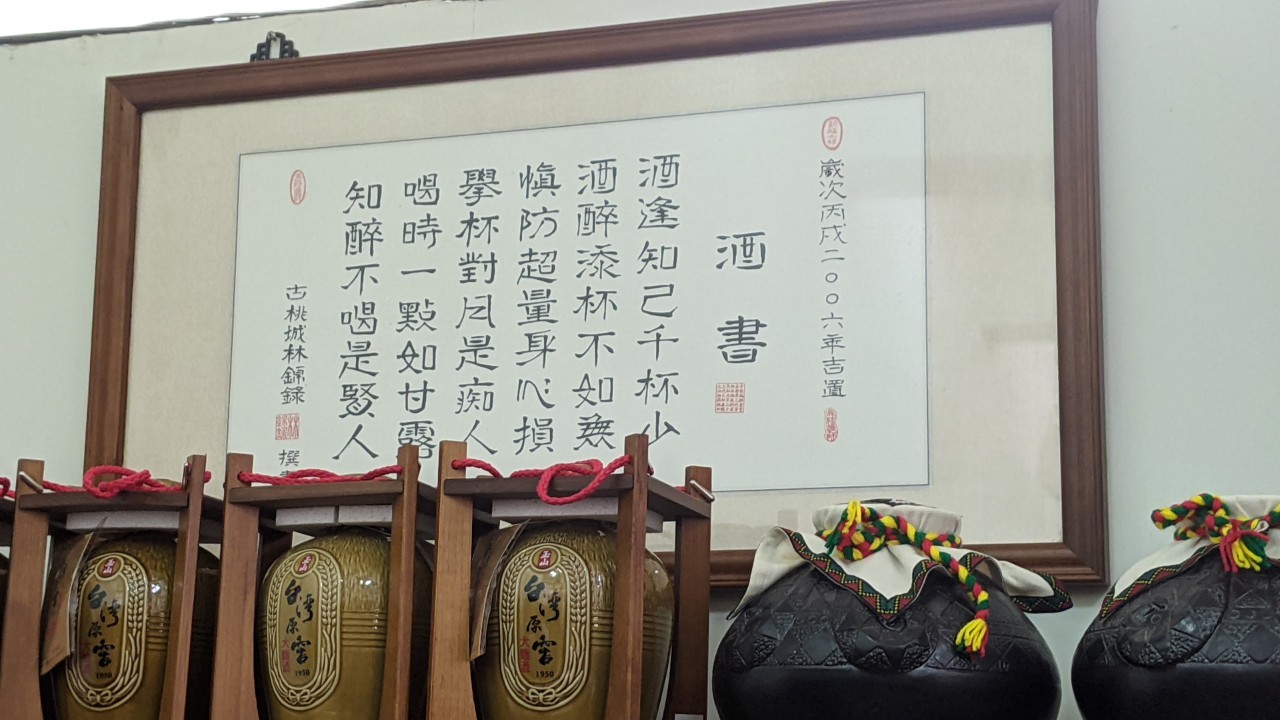 歲次丙戌二００六年吉置
酒書
酒逢知己千杯少
酒醉添杯不如無
慎防超量身心損
擧杯對月是痴人
喝時一點如甘露
知醉不喝是賢人
古桃城林錦錄
撰
玉山
台灣原窖
1950
玉山
台灣原窖
1950
玉山
台灣原窖
1950